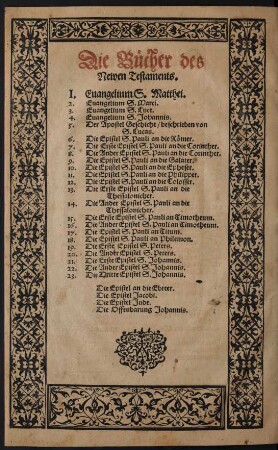 Die Bücher des
Newen Testaments.
I. Euangelium S. Matthei.
2. Euangelium S. Marci.
3. Euangelium S. Luce.
4. Euangelium S. Johannis.
5. Der Apostel Geschichte / beschrieben von
S. Lucas.
6. Die Epistel S. Pauli an die Römer.
7. Die Erste Epistel S. Pauli an die Corinther.
8. Die Ander Epistel S. Pauli an die Corinther.
9. Die Epistel S. Pauli an die Galater.
10. Die Epistel S. Pauli an die Epheser.
11. Die Epistel S. Pauli an die Philipper.
12. Die Epistel S. Pauli an die Colosser.
13. Die Erste Epistel S. Pauli an die
Thessalonicher.
14. Die Ander Epistel S. Pauli an die
Thessalonicher.
15. Die Erste Epistel S. Pauli an Timotheum.
16. Die Ander Epistel S. Pauli an Timotheum.
17. Die Epistel S. Pauli an Titum.
18. Die Epistel S. Pauli an Philemon.
19. Die Erste Epistel S. Peters.
20. Die Ander Epistel S. Peters.
21. Die Erste Epistel S. Johannis.
22. Die Ander Epistel S. Johannis.
23. Die Dritte Epistel S. Johannis.
Die Epistel an die Ebreer.
Die Epistel Jacobi.
Die Epistel Jude.
Die Offenbarung Johannis.